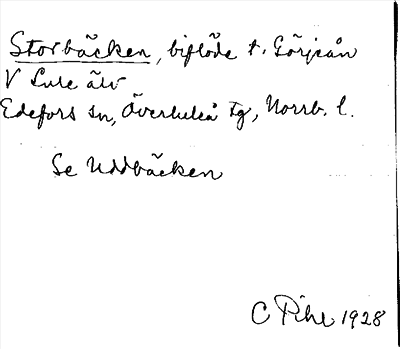 Storbäcken, biflöde t. Görjeån
V Lule älv
Edefors sn, Överluleå tg, Norrb. l.
Se Uddbäcken
C Pihl 1928